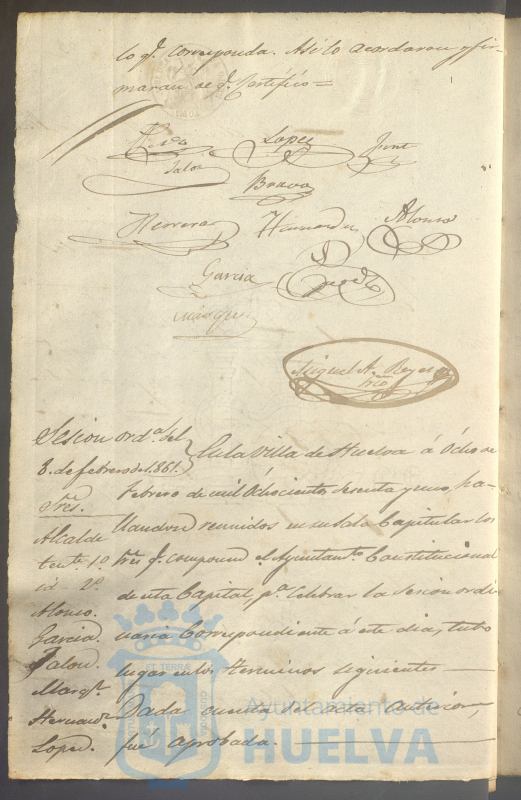 lo q.e corresponda. Asi lo acordaron y fir-
maran de q.e Certifico=
Lopez
Jalon
Bravo
Herrera Hernandez Alonso
Garcia
Marques
Miguel A. Reyes
Srio
Sesion ord.a del
8. de febrero de 1861.
Sres.
Alcalde
tente. 1.o
id. 2.o
Alonso.
Garcia.
Jalon.
Marq.s
Hernandz.
Lopez.
En la Villa de Huelva á Ocho de
Febrero de mil Ochocientos Sesenta y uno, ha-
llandose reunidos en su Sala Capitular los
Sres q.e componen el Ayuntam.to Constitucional
de esta Capital, p.a Celebrar la Sesion ordi
naria Correspondiente á este dia, tubo
lugar en los terminos siguientes
Dada cuenta del acta anterior,
fué aprobada.
ET TERRÆ
Ayuntamiento de
HUELVA